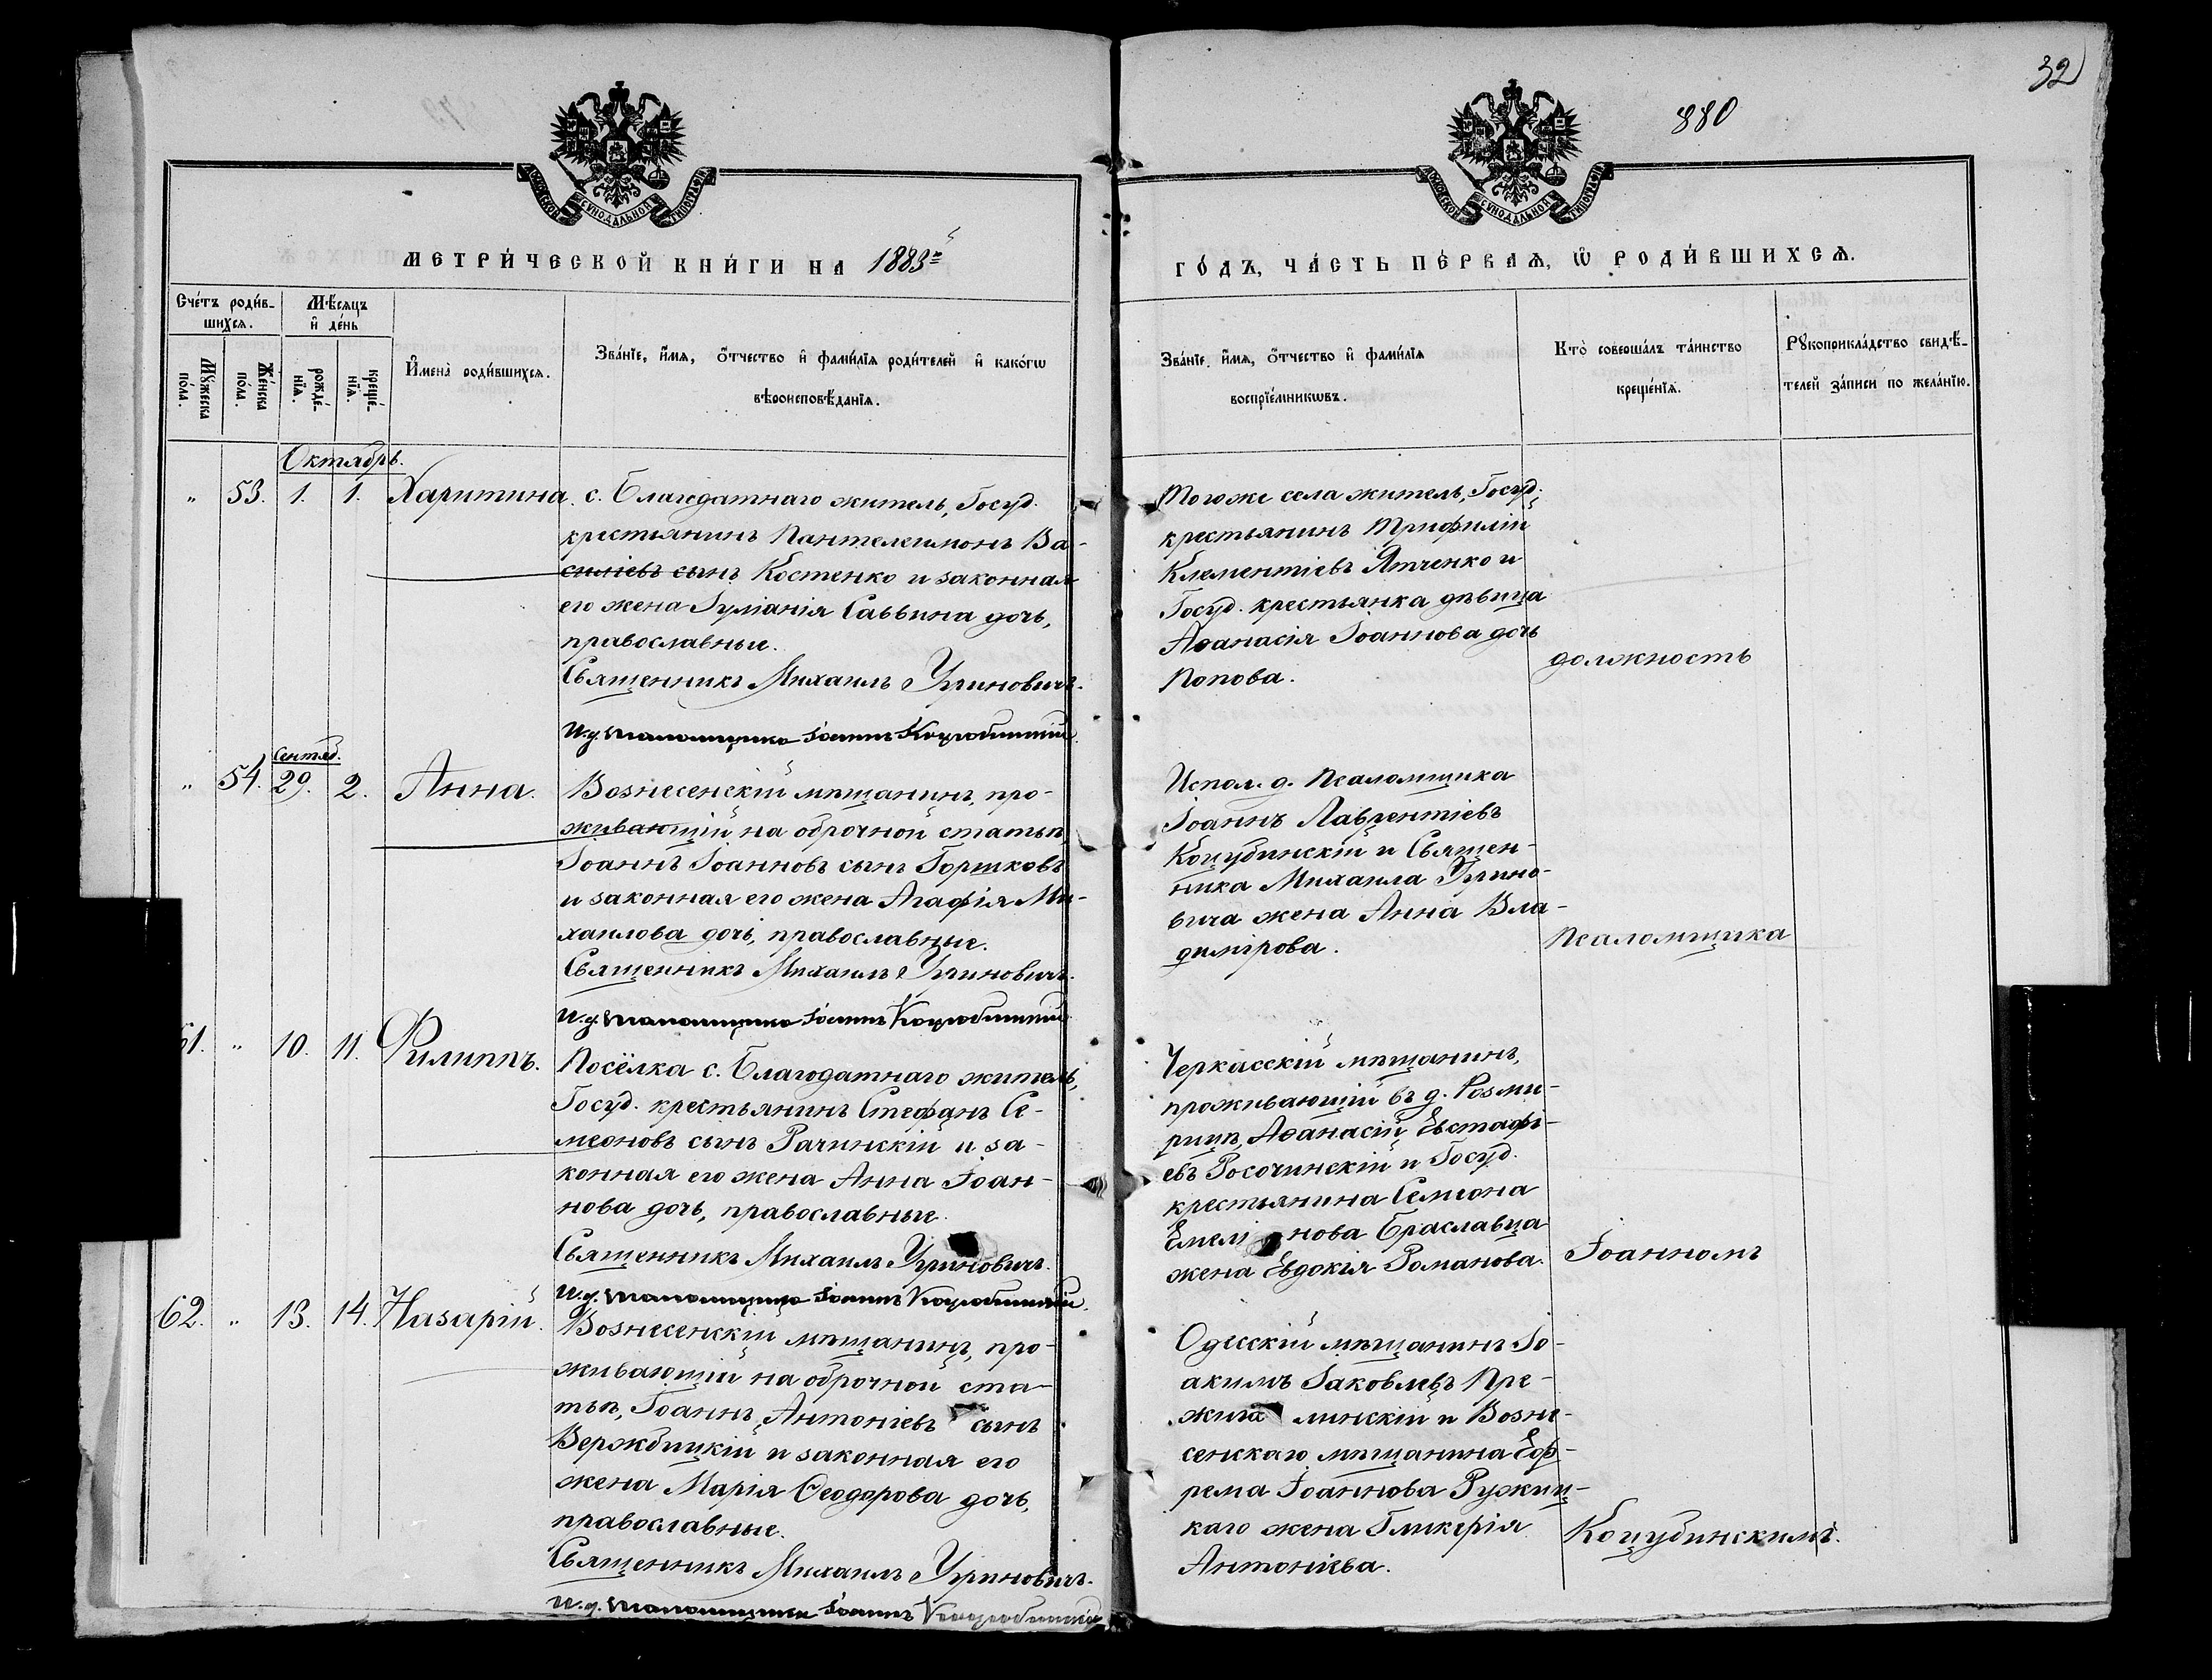 32
880
МОСКОВСКОЙ СѴНОДАЛЬНОЙ ТИПОГРАФІИ
МОСКОВСКОЙ СѴНОДАЛЬНОЙ ТИПОГРАФІИ
МЕТРИ́ЧЕСКОЙ КНИ́ГИ НА 1883й
ГО́ДЪ, ЧА́СТЬ ПЕ́РВАѦ, Ѿ РОДИ́ВШИХСѦ.
Сче́тъ роди́в-
шихсѧ.
Мѣ́сѧцъ
и҆ де́нь
Мꙋ́жеска
по́ла.
Же́нска
по́ла.
рожде́-
нїѧ.
креще́-
нїѧ.
И҆мена̀ роди́вшихсѧ.
Зва́нїе, и҆́мѧ, ѻ҆́тчество и҆ фами́лїѧ роди́телей и҆ како́гѡ
вѣроисповѣ́данїѧ.
Зва́нїе, и҆́мѧ, ѻ҆́тчество и҆ фами́лїѧ
воспрїе́мникѡвъ.
Кто̀ соверша́лъ та́инство
креще́нїѧ.
Рꙋкоприкла́дство свидѣ́-
телей за́писи по жела́нїю.
Октябрь.
" 53. 1. 1. Харитина.
с. Благодатнаго житель, Госуд.
крестьянинъ Пантелеимонъ Ва-
силіевъ сынъ Костенко и законная
его жена Гуліанія Саввина дочь,
православные.
Священникъ Михаилъ Угриновичъ.
И. д. псаломщика Іоаннъ Коцюбинскій.
Тогоже села житель, Госуд.
крестьянинъ Трифилій
Клементіевъ Ятченко и
Госуд. крестьянка дѣвица
Аѳанасія Іоаннова дочь
Попова.
должность
Сентяб.
" 54. 29. 2. Анна.
Вознесенскій мѣщанинъ, про-
живающій на оброчной статьѣ
Іоаннъ Іоанновъ сынъ Горшковъ
и законная его жена Агафія Ми-
хаилова дочь, православные.
Священникъ Михаилъ Угриновичъ.
И. д. псаломщика Іоаннъ Коцюбинскій
Испол. д. Псаломщика
Іоаннъ Лаврентіевъ
Коцубинскій и Священ-
ника Михаила Угрино-
вича жена Анна Вла-
димірова.
Псаломщика
61. " 10. 11. Филиппъ.
Посёлка с. Благодатнаго житель,
Госуд. крестьянинъ Стефанъ Се-
меоновъ сынъ Рачинскій и за-
конная его жена Анна Іоан-
нова дочь, православные.
Священникъ Михаилъ Угриновичъ.
И. д. псаломщика Іоаннъ Коцюбинскій.
Черкасскій мѣщанинъ,
проживающій въ д. Розми-
рицѣ, Аѳанасій Евстафі-
евъ Росочинскій и Госуд.
крестьянина Семеона
Емеліянова Браславца
жена Евдокія Романова.
Іоанномъ
62. " 13. 14. Назарій.
Вознесенскій мѣщанинъ, про-
живающій на оброчной ста-
тьѣ, Іоаннъ Антоніевъ сынъ
Вержбицкій и законная его
жена Марія Ѳеодорова дочь,
православные.
Священникъ Михаилъ Угриновичъ.
И. д. псаломщика Іоаннъ Коцюбинскій
Одесскій мѣщанинъ Іо-
акимъ Іаковлевъ Пре-
жигалинскій и Возне-
сенскаго мѣщанина Еф-
рема Іоаннова Ружиц-
каго жена Гликерія
Антоніева.
Коцубинскимъ.